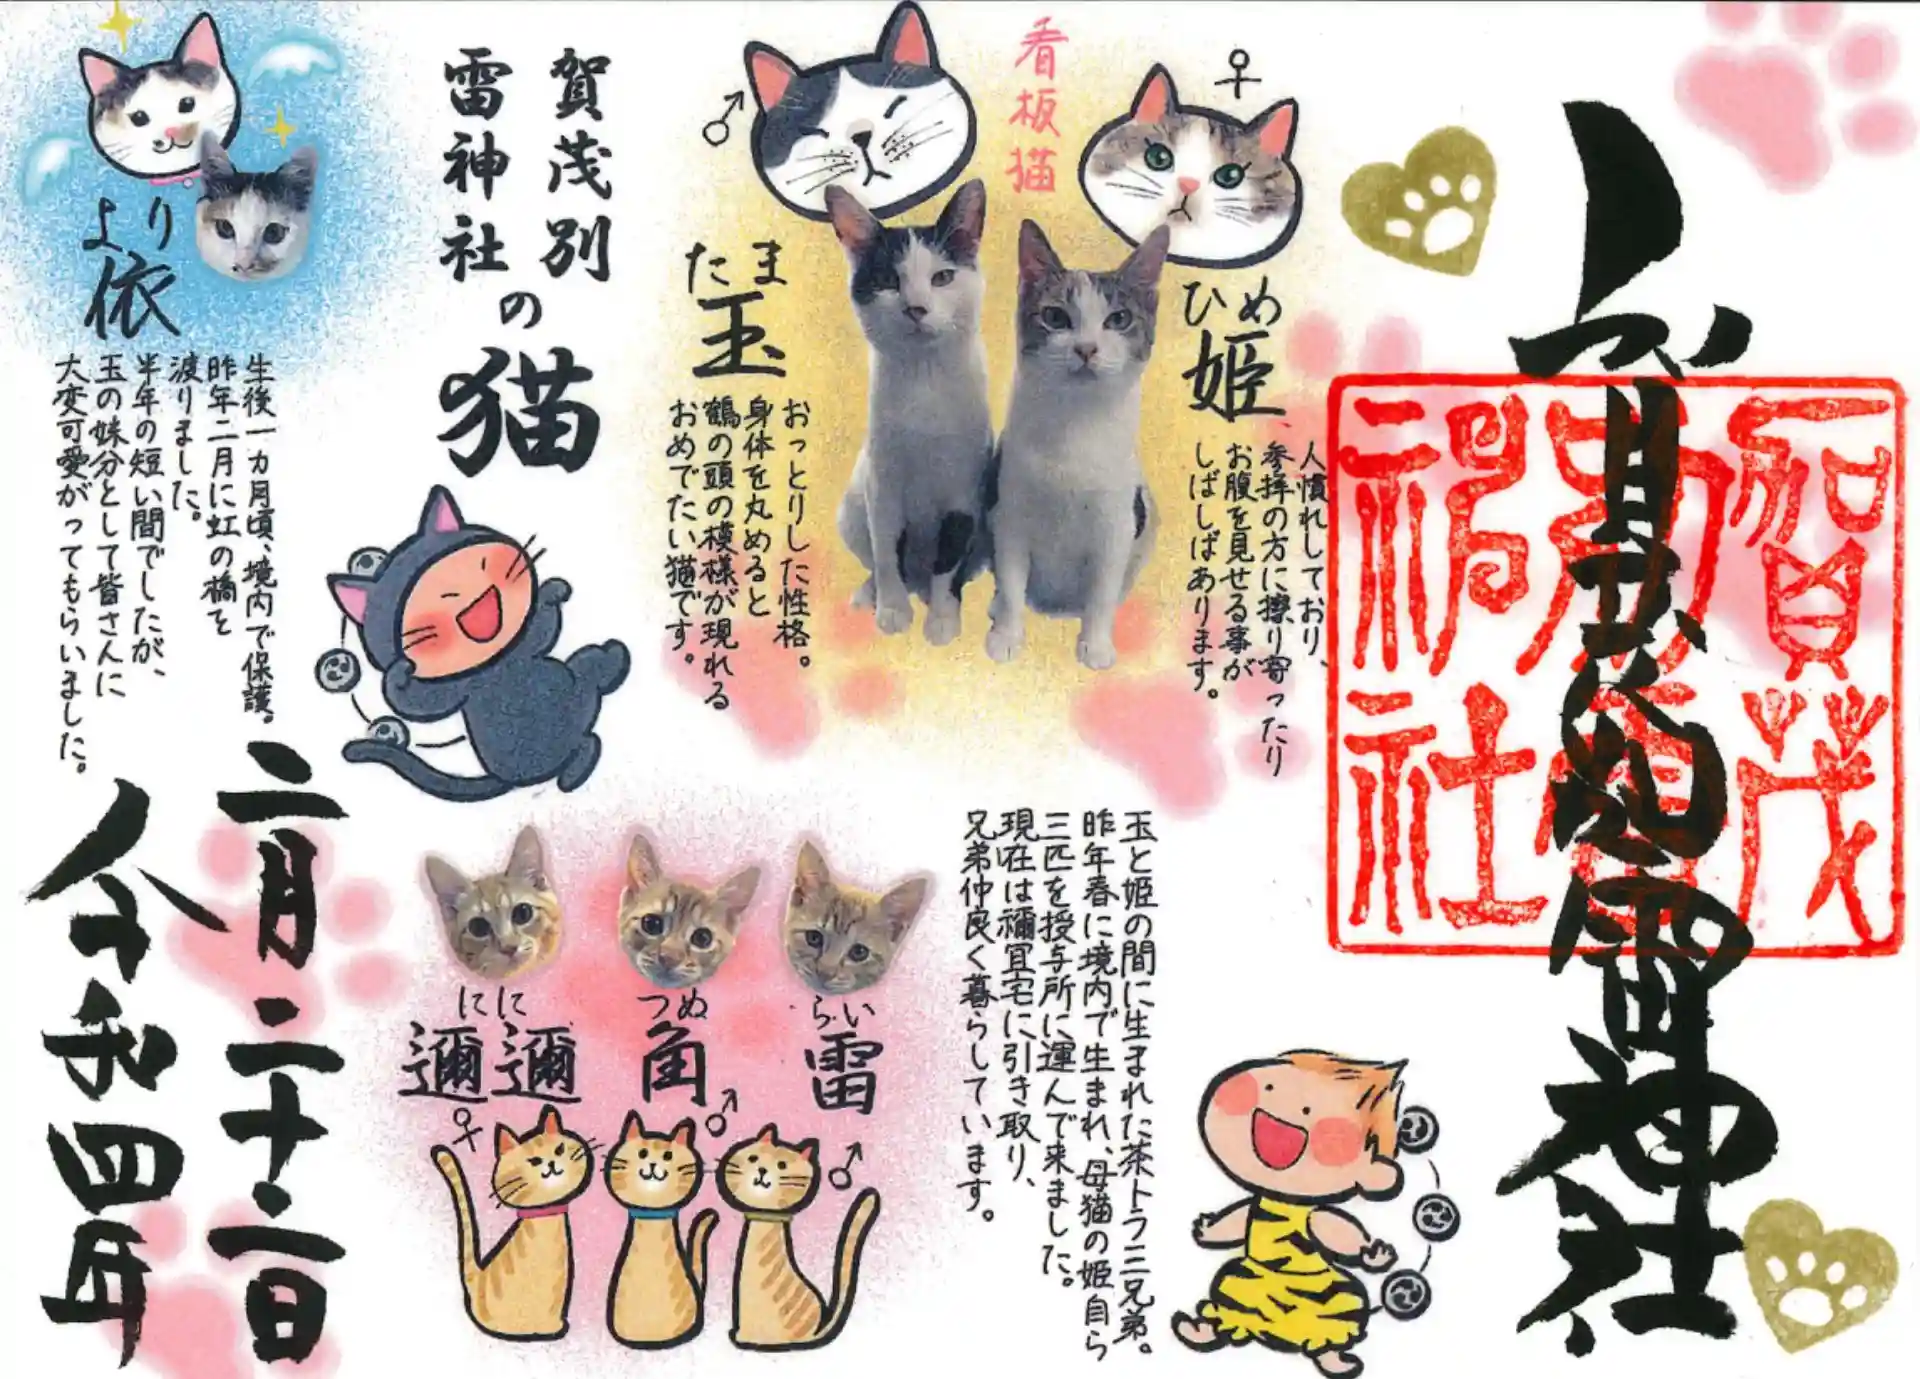 賀茂別雷神社
賀茂
別雷
神社
看板猫
♀
ひめ
姫
人慣れしており、
参拝の方に擦り寄ったり
お腹を見せる事が
しばしばあります。
♂
たま
玉
おっとりした性格。
身体を丸めると
鶴の頭の模様が現れる
おめでたい猫です。
玉と姫の間に生まれた茶トラ三兄弟。
昨年春に境内で生まれ、母猫の姫自ら
三匹を授与所に運んで来ました。
現在は禰宜宅に引き取り、
兄弟仲良く暮らしています。
らい
雷
♂
つぬ
角
♂
にに
邇邇
♀
賀茂別
雷神社の
猫
より
依
生後一カ月頃、境内で保護。
昨年二月に虹の橋を
渡りました。
半年の短い間でしたが、
玉の妹分として皆さんに
大変可愛がってもらいました。
二月二十二日
令和四年